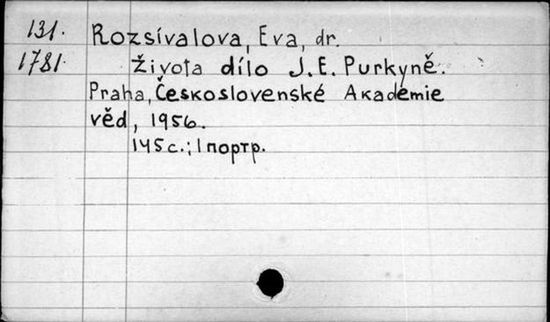 131.
1781.
Rozsívalova, Eva, dr.
Života dílo J. E. Purkyně.
Praha, Československé Akademie
věd, 1956.
145 с.; 1 портр.